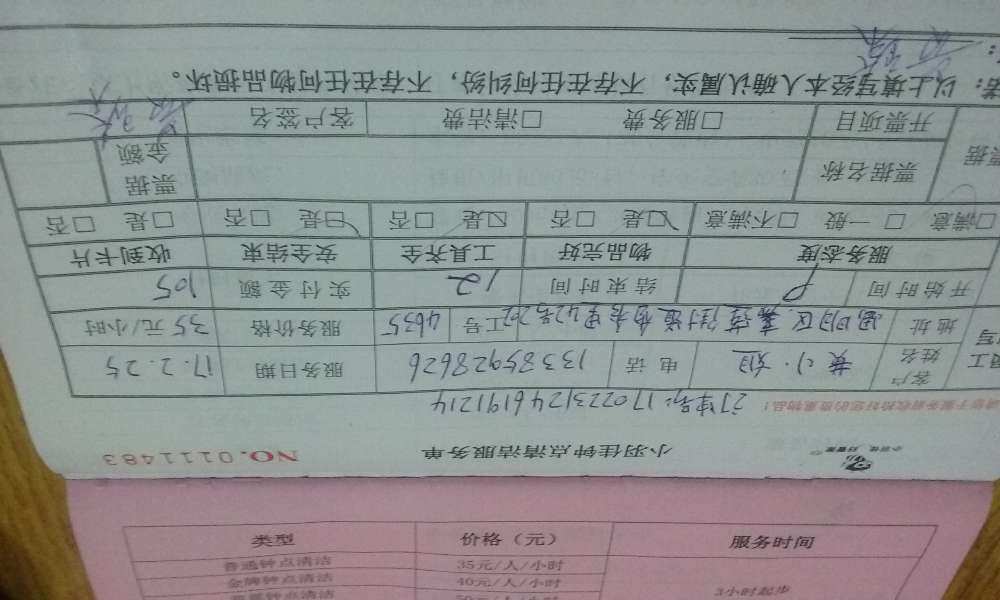 小羽佳钟点清洁服务单 NO.0111483
订单号:170223124619 1214
客户姓名 黄小姐 电话 13385928626 服务日期 17.2.25
地址 工号 4635 服务价格 35元/小时
开始时间 9 结束时间 12 实付金额 105
服务态度 物品完好 工具齐全 安全结束 收到卡片
□满意 □一般 □不满意 □是 □否 □是 □否 □是 □否 □是 □否
票据名称 票据金额
开票项目 □服务费 □清洁费 客户签名
以上填写经本人确认属实,不存在任何纠纷,不存在任何物品损坏。
类型 价格(元) 服务时间
普通钟点清洁 35元/人/小时
金牌钟点清洁 40元/人/小时
3小时起步
钟点清洁 50元/人/小时